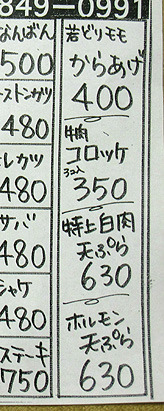 849-0991
なんばん
500
ーストンカツ
480
レカツ
480
サバ
480
シャケ
480
ステーキ
750
若ドリモモ
からあげ
400
牛肉
コロッケ
3コ入
350
特上白肉
天ぷら
630
ホルモン
天ぷら
630